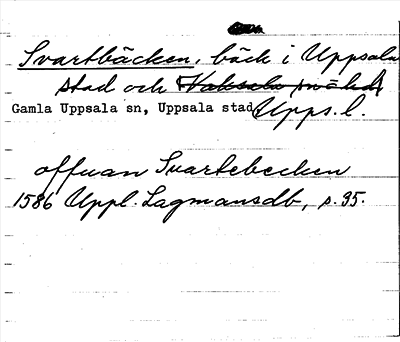 Svartbäcken, bäck i Uppsala
stad och Vaksala snählr
Gamla Uppsala sn, Uppsala stad, Upps. l.
offuan Suartebecken
1586 Uppl. Lagmansdb, s. 95.